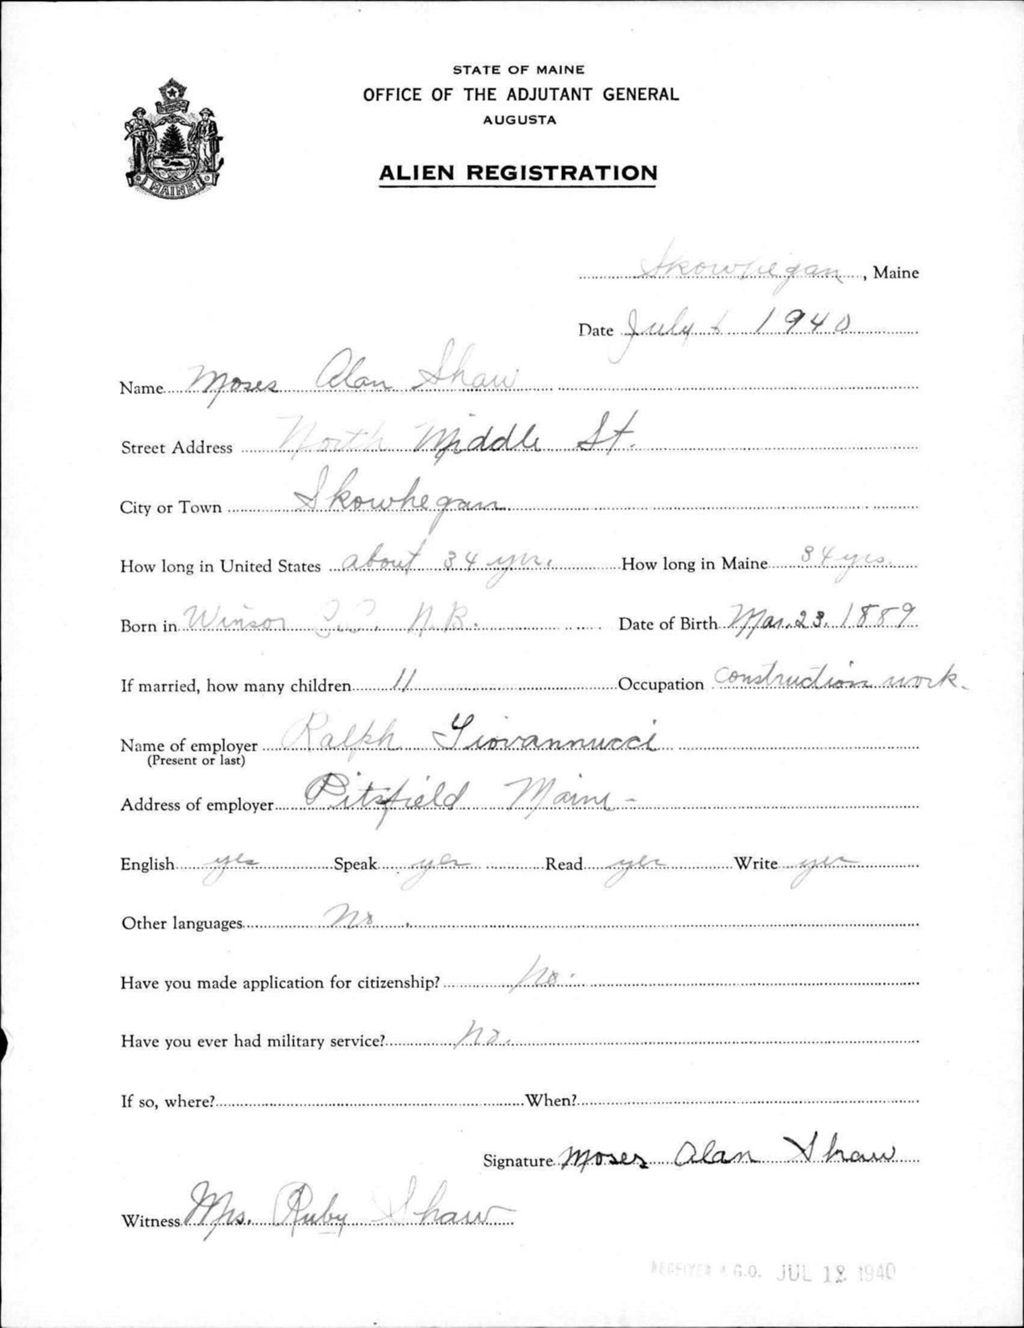 STATE OF MAINE
OFFICE OF THE ADJUTANT GENERAL
AUGUSTA
ALIEN REGISTRATION
MAINE
Skowhegan, Maine
Date July 1940
Name Moses Alan Shaw
Street Address North Middle St.
City or Town Skowhegan
How long in United States about 34 yrs. How long in Maine 34 yrs.
Born in Winsor C.C. N.B. Date of Birth Mar. 23. 1889
If married, how many children 11 Occupation Construction work.
Name of employer Ralph Giovannucci
(Present or last)
Address of employer Pitsfield Maine -
English yes Speak yes Read yes Write yes
Other languages No.
Have you made application for citizenship? No.
Have you ever had military service? No.
If so, where? When?
Signature Moses Alan Shaw
Witness Mrs. Ruby Shaw
RECEIVED A.G.O. JUL 12 1940